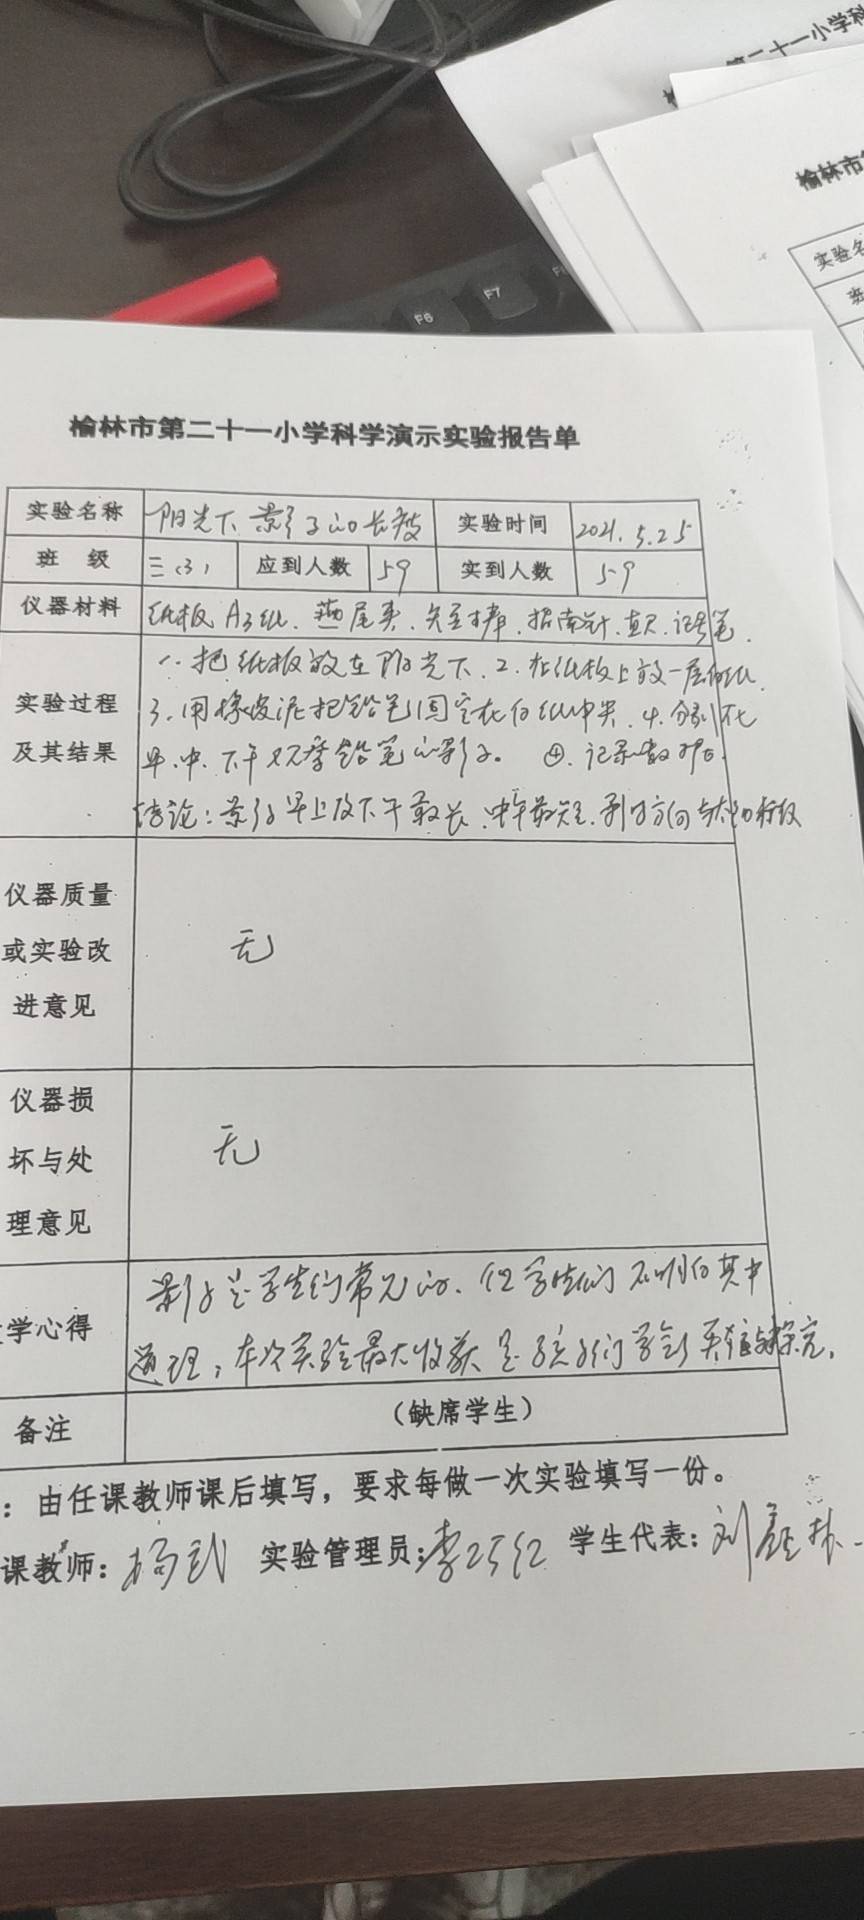 二十一小学科
榆林市
实验名
班
F6
F7
榆林市第二十一小学科学演示实验报告单
实验名称 阳光下影子的长短 实验时间 2021.5.25
班 级 三(3) 应到人数 59 实到人数 59
仪器材料 纸板 A3纸. 燕尾夹. 指南针. 直尺. 记号笔.
实验过程
及其结果
1. 把纸板放在阳光下. 2. 在纸板上放一层白纸.
3. 用橡皮泥把铅笔固定在白纸中央. 4. 分别在
早.中.下午观察铅笔的影子。 ④. 记录数据.
结论: 影子早上及下午最长. 中午最短. 方向与太阳
仪器质量
或实验改
进意见
无
仪器损
坏与处
理意见
无
学心得
影子是学生们常见的. 但学生们不明白其中
道理, 本次实验最大收获是孩子们学会探究.
备注 (缺席学生)
: 由任课教师课后填写，要求每做一次实验填写一份。
课教师: 实验管理员: 李巧红 学生代表: 刘